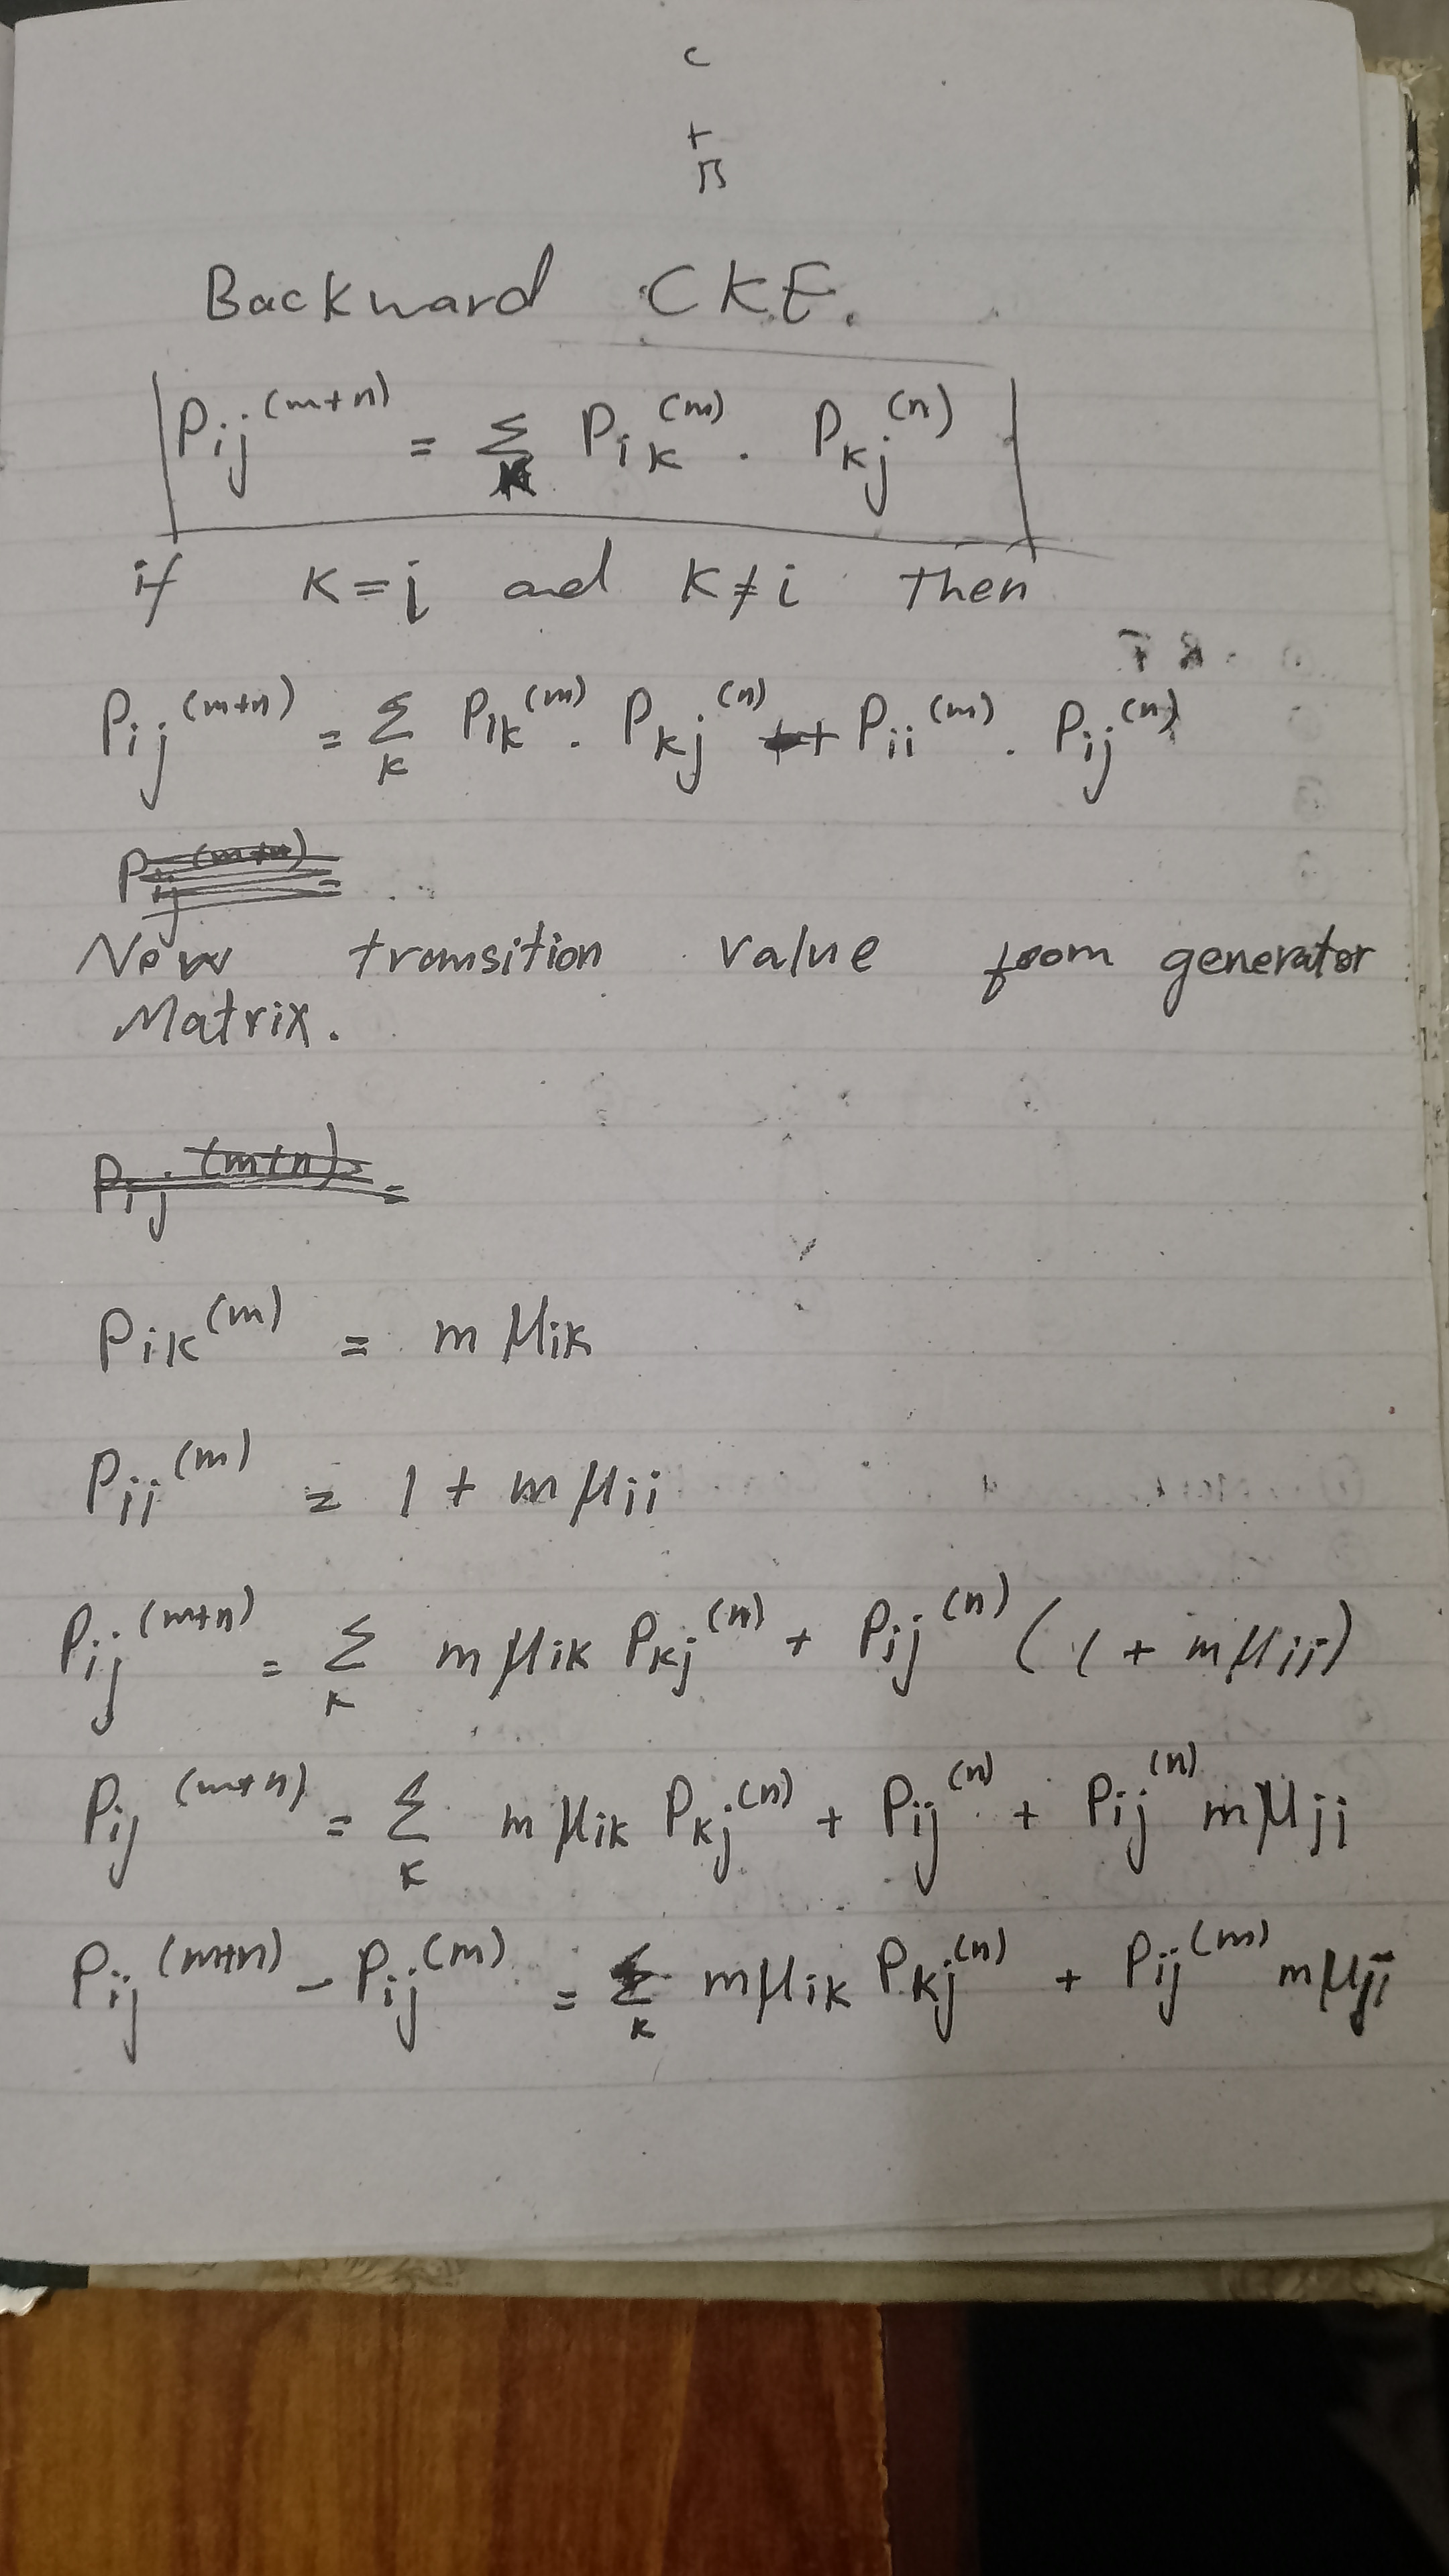 C
+
B
Backward CKE.
Pij^(m+n) = Σ_K Pik^(m) . Pkj^(n)
if K=i and K≠i Then
Pij^(m+n) = Σ_K Pik^(m) . Pkj^(n) + Pii^(m) . Pij^(n)
Pij^(m+n) =
New transition value from generator
Matrix.
Pij^(m+n) =
Pik^(m) = m μik
Pii^(m) = 1 + m μii
Pij^(m+n) = Σ_K m μik Pkj^(n) + Pij^(n) (1 + m μii)
Pij^(m+n) = Σ_K m μik Pkj^(n) + Pij^(n) + Pij^(n) m μji
Pij^(m+n) - Pij^(m) = Σ_K m μik Pkj^(n) + Pij^(m) m μji